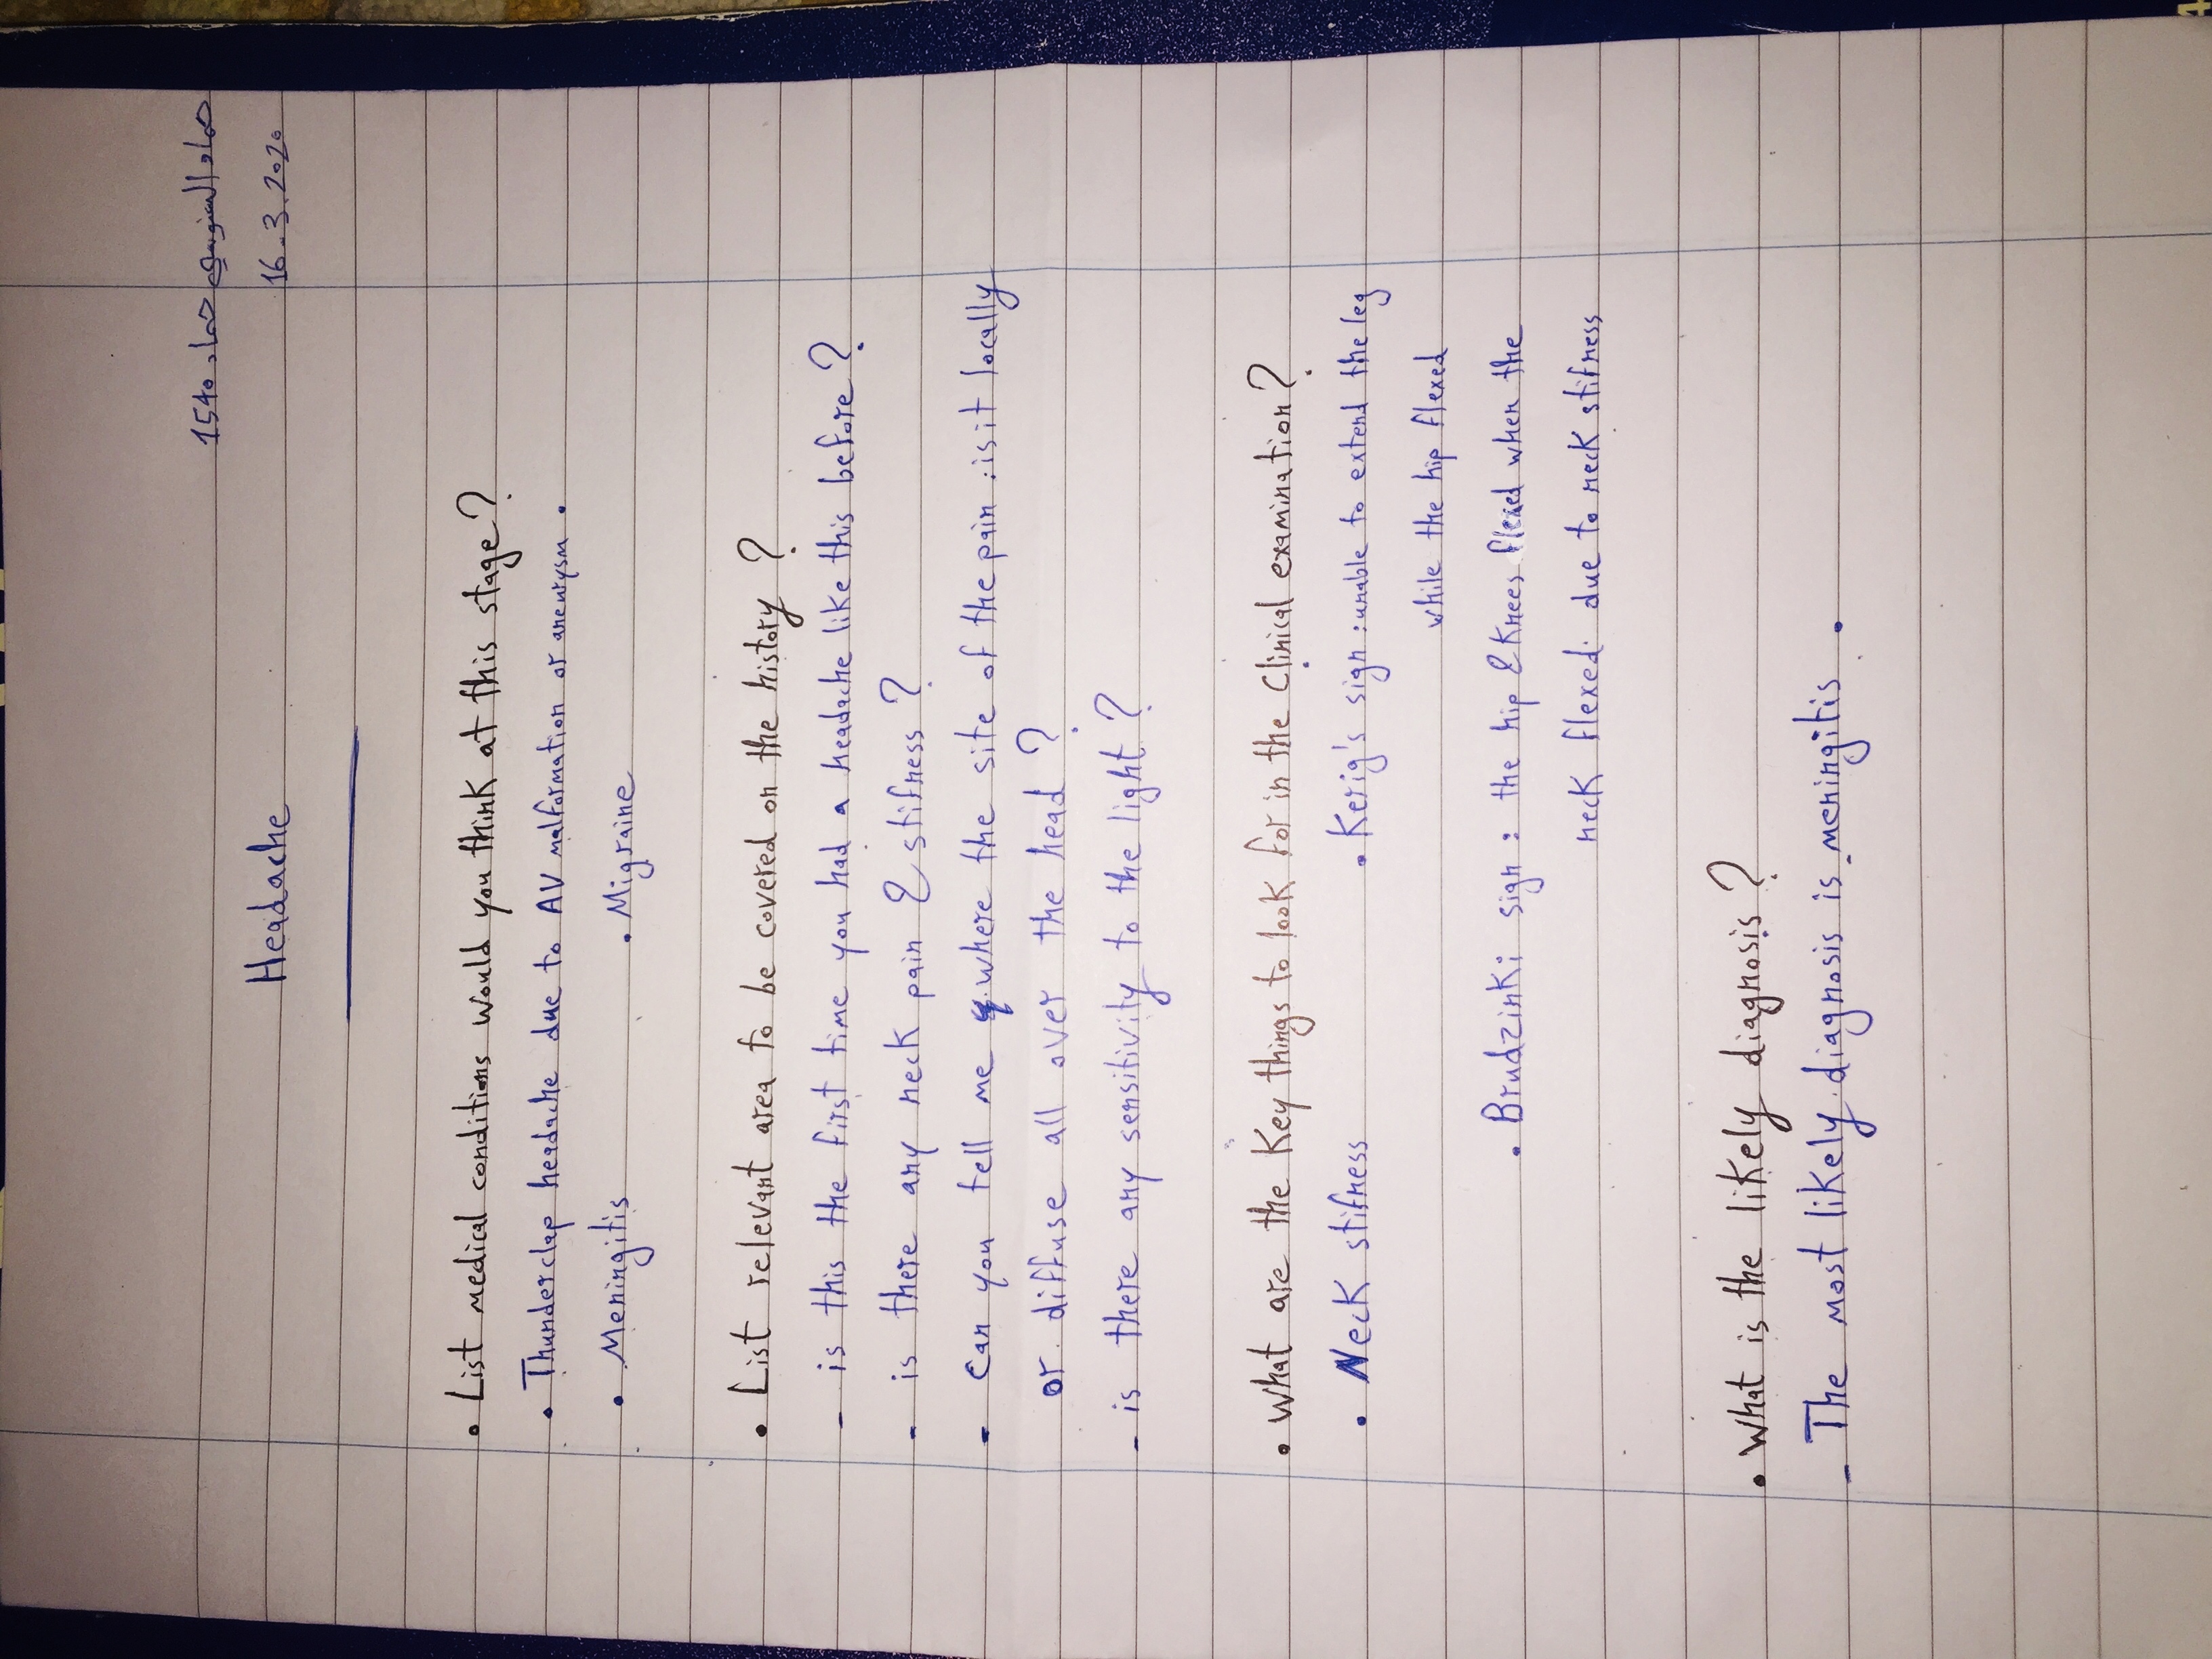 1540
16.3.2020
Headache
• List medical conditions would you think at this stage?
• Thunderclap headache due to AV malformation or aneurysm.
• Meningitis • Migraine
• List relevant area to be covered on the history?
- is this the first time you had a headache like this before?
- is there any neck pain & stifness?
- can you tell me where the site of the pain : is it locally
or diffuse all over the head?
- is there any sensitivity to the light?
• What are the Key things to look for in the Clinical examination?
• Neck stifness • Kerig's sign : unable to extend the leg
while the hip flexed
• Brudzinki sign : the hip & Knees flexed when the
neck flexed due to neck stifness
• What is the likely diagnosis?
- The most likely diagnosis is meningitis.